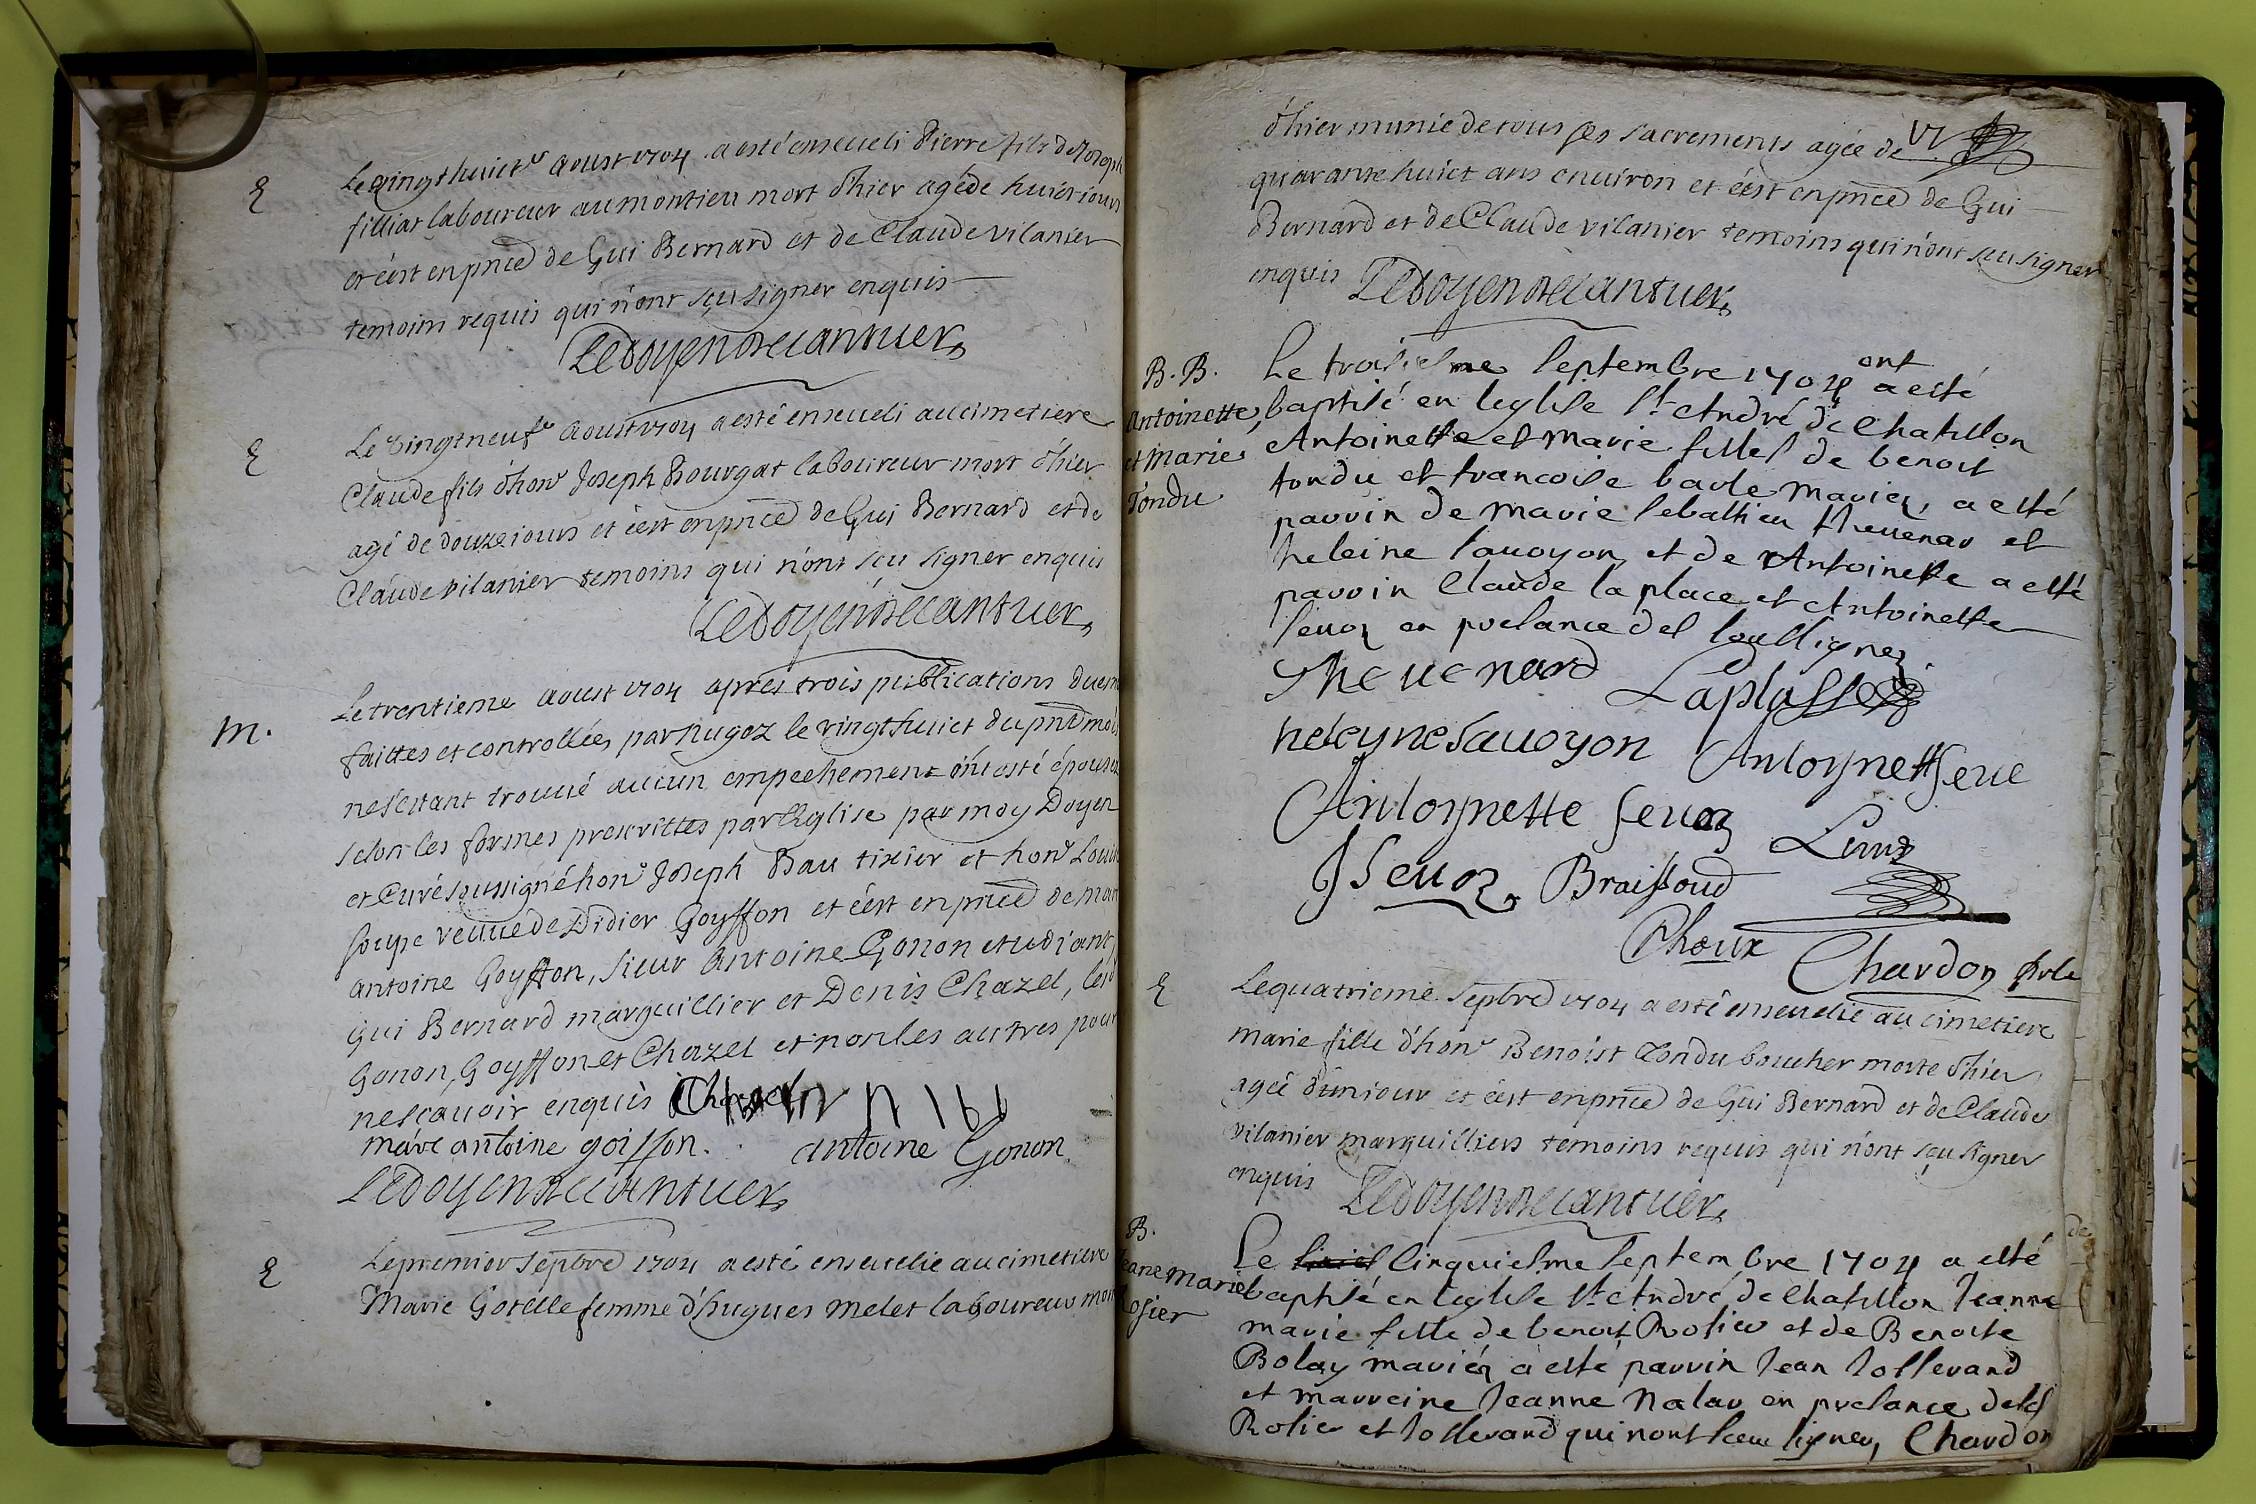 E
Le vingt huict^e Aoust 1704 a esté enseueli Pierre fils de Joseph
filliat laboureur au montieu mort d'hier agé de huict iours
et c'est en pnce de Gui Bernard et de Claude vilanier
temoins requis qui n'ont sçu signer enquis
Ledoyen de cantuer
E
Le vingt neuf^e Aoust 1704 a esté enseueli au cimetiere
Claude fils d'hon^e Joseph Bourgat laboureur mort d'hier
agé de douze iours et c'est en pnce de Gui Bernard et de
Claude vilanier temoins qui n'ont sçu signer enquis
Ledoyen de cantuer
M.
Le trentieme Aoust 1704 apres trois publications duem
faittes et controllées par Pugoz le vingt huict du pnt moi
ne s'estant trouué aucun empechement ont esté épousé
selon les formes prescrittes par l'Eglise par moy Doyen
et Curé soussigné hon^e Joseph Bau tixier et hon^e Loui
veuue de Didier Goyffon et c'est en pnce de mar
antoine Goyffon, sieur Antoine Gonon etudiant
Gui Bernard marguillier et Denis Chazel, les d
Gonon, Goyffon et Chazel et non les autres pour
ne sçauoir enquis
marc antoine goiffon. antoine Gonon
Ledoyen de cantuer
E
Le premier Septbre 1704 a esté enseuelie au cimetiere
Marie Gotelle femme d'hugues melet laboureur mor
d'hier munie de tous ses sacrements agée de
quarante huict ans enuiron et c'est en pnce de Gui
Bernard et de Claude vilanier temoins qui n'ont sçu signer
enquis Ledoyen de cantuer
B. B.
Antoinette
et Marie
Tondu
Le troisiesme septembre 1704 ont a esté
baptisé en leglise st André de chatillon
Antoinette et marie filles de benoit
tondu et francoise barle mariez, a esté
parrin de marie sebastien theuenar et
heleine sauoyon et de Antoinette a esté
parrin Claude la place et Antoinette
seuoz en presance des soussignez
Theuenard Laplasse
heleyne sauoyon Antoynette seue
Antoynette seuoz
J Seuoz Braissoud
Chardon
E
Le quatrieme Septbre 1704 a esté enseuelie au cimetiere
Marie fille d'hon^e Benoist Tondu boucher morte d'hier
agée d'un iour et c'est en pnce de Gui Bernard et de Claude
vilanier marguilliers temoins requis qui n'ont sçu signer
enquis Ledoyen de cantuer
B.
Jeane marie
Rosier
Le cinquiesme septembre 1704 a esté
baptisé en leglise st André de chatillon Jeanne
marie fille de benoit Rosier et de Benoite
Bolay mariéz a esté parrin Jean Jollevard
et marreine Jeanne Nalar en presance desd
Rosier et Jollevard qui nont sceu signer, Chardon